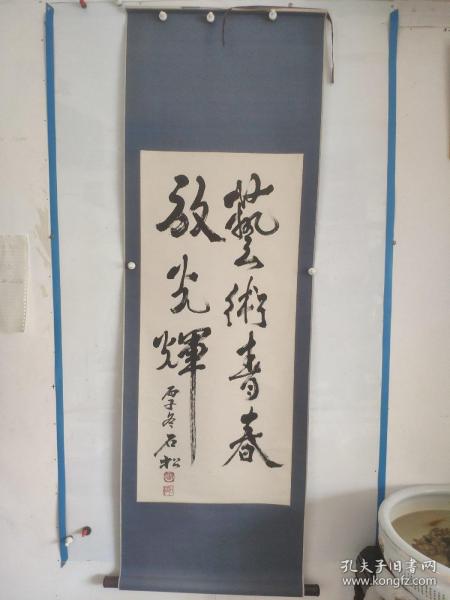 藝術青春
放光輝
丙子冬石松
孔夫子旧书网
www.kongfz.com